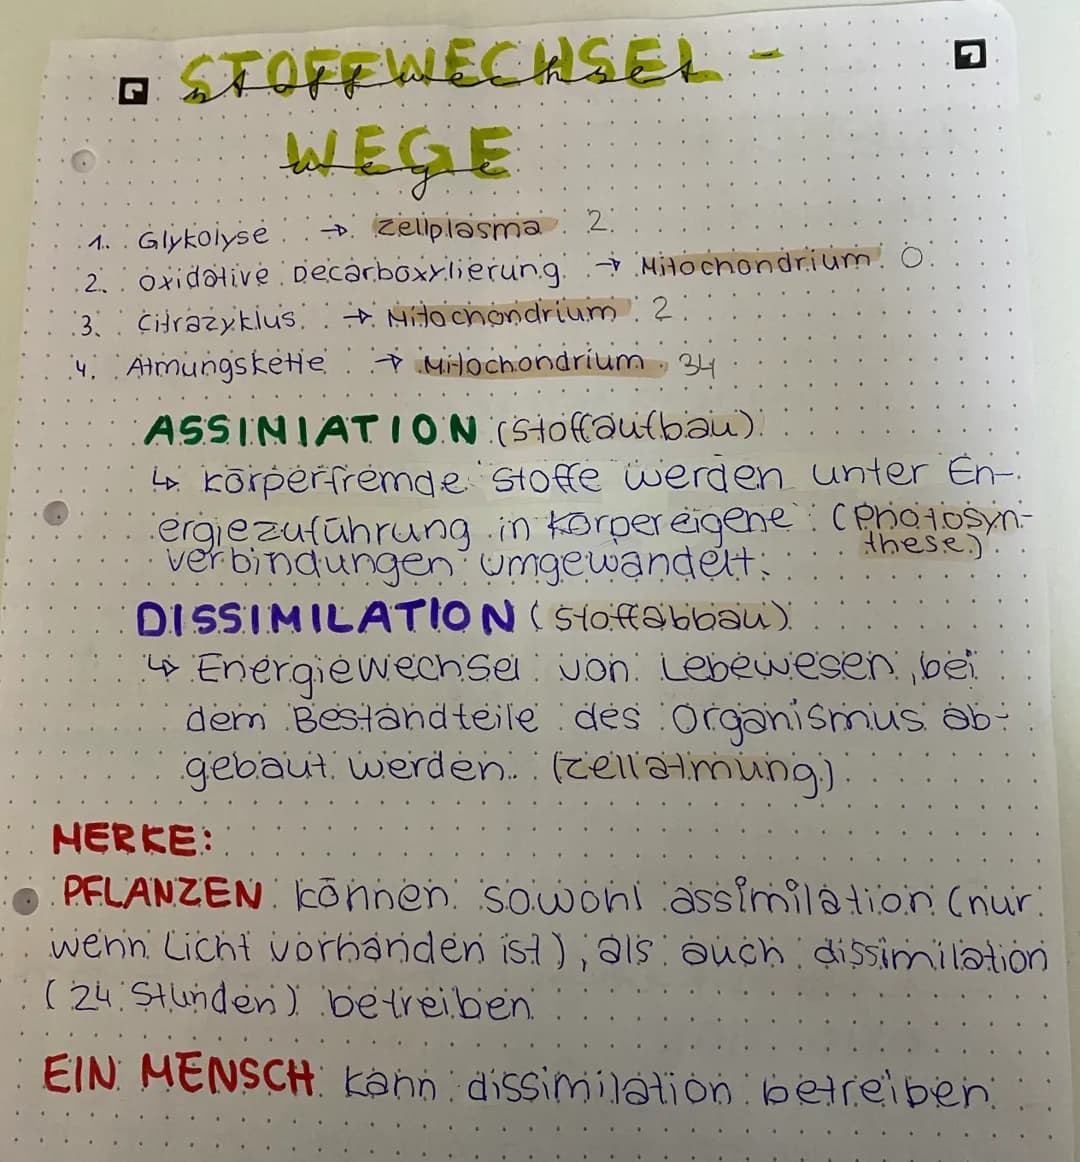 STOFFWECHSEL-
WEGE
1. Glykolyse → Zellplasma 2
2. oxidative Decarboxylierung → Mitochondrium 0
3. Citrazyklus → Mitochondrium 2
4. Atmungskette → Mitochondrium 34
ASSINIATION (Stoffaufbau)
↳ körperfremde Stoffe werden unter En-
ergiezuführung in körpereigene (Photosyn-
verbindungen umgewandelt. these)
DISSIMILATION (Stoffabbau)
↳ Energiewechsel von Lebewesen, bei
dem Bestandteile des Organismus ab-
gebaut werden. (Zellatmung)
MERKE:
PFLANZEN können sowohl assimilation (nur
wenn Licht vorhanden ist), als auch dissimilation
(24 Stunden) betreiben
EIN MENSCH kann dissimilation betreiben